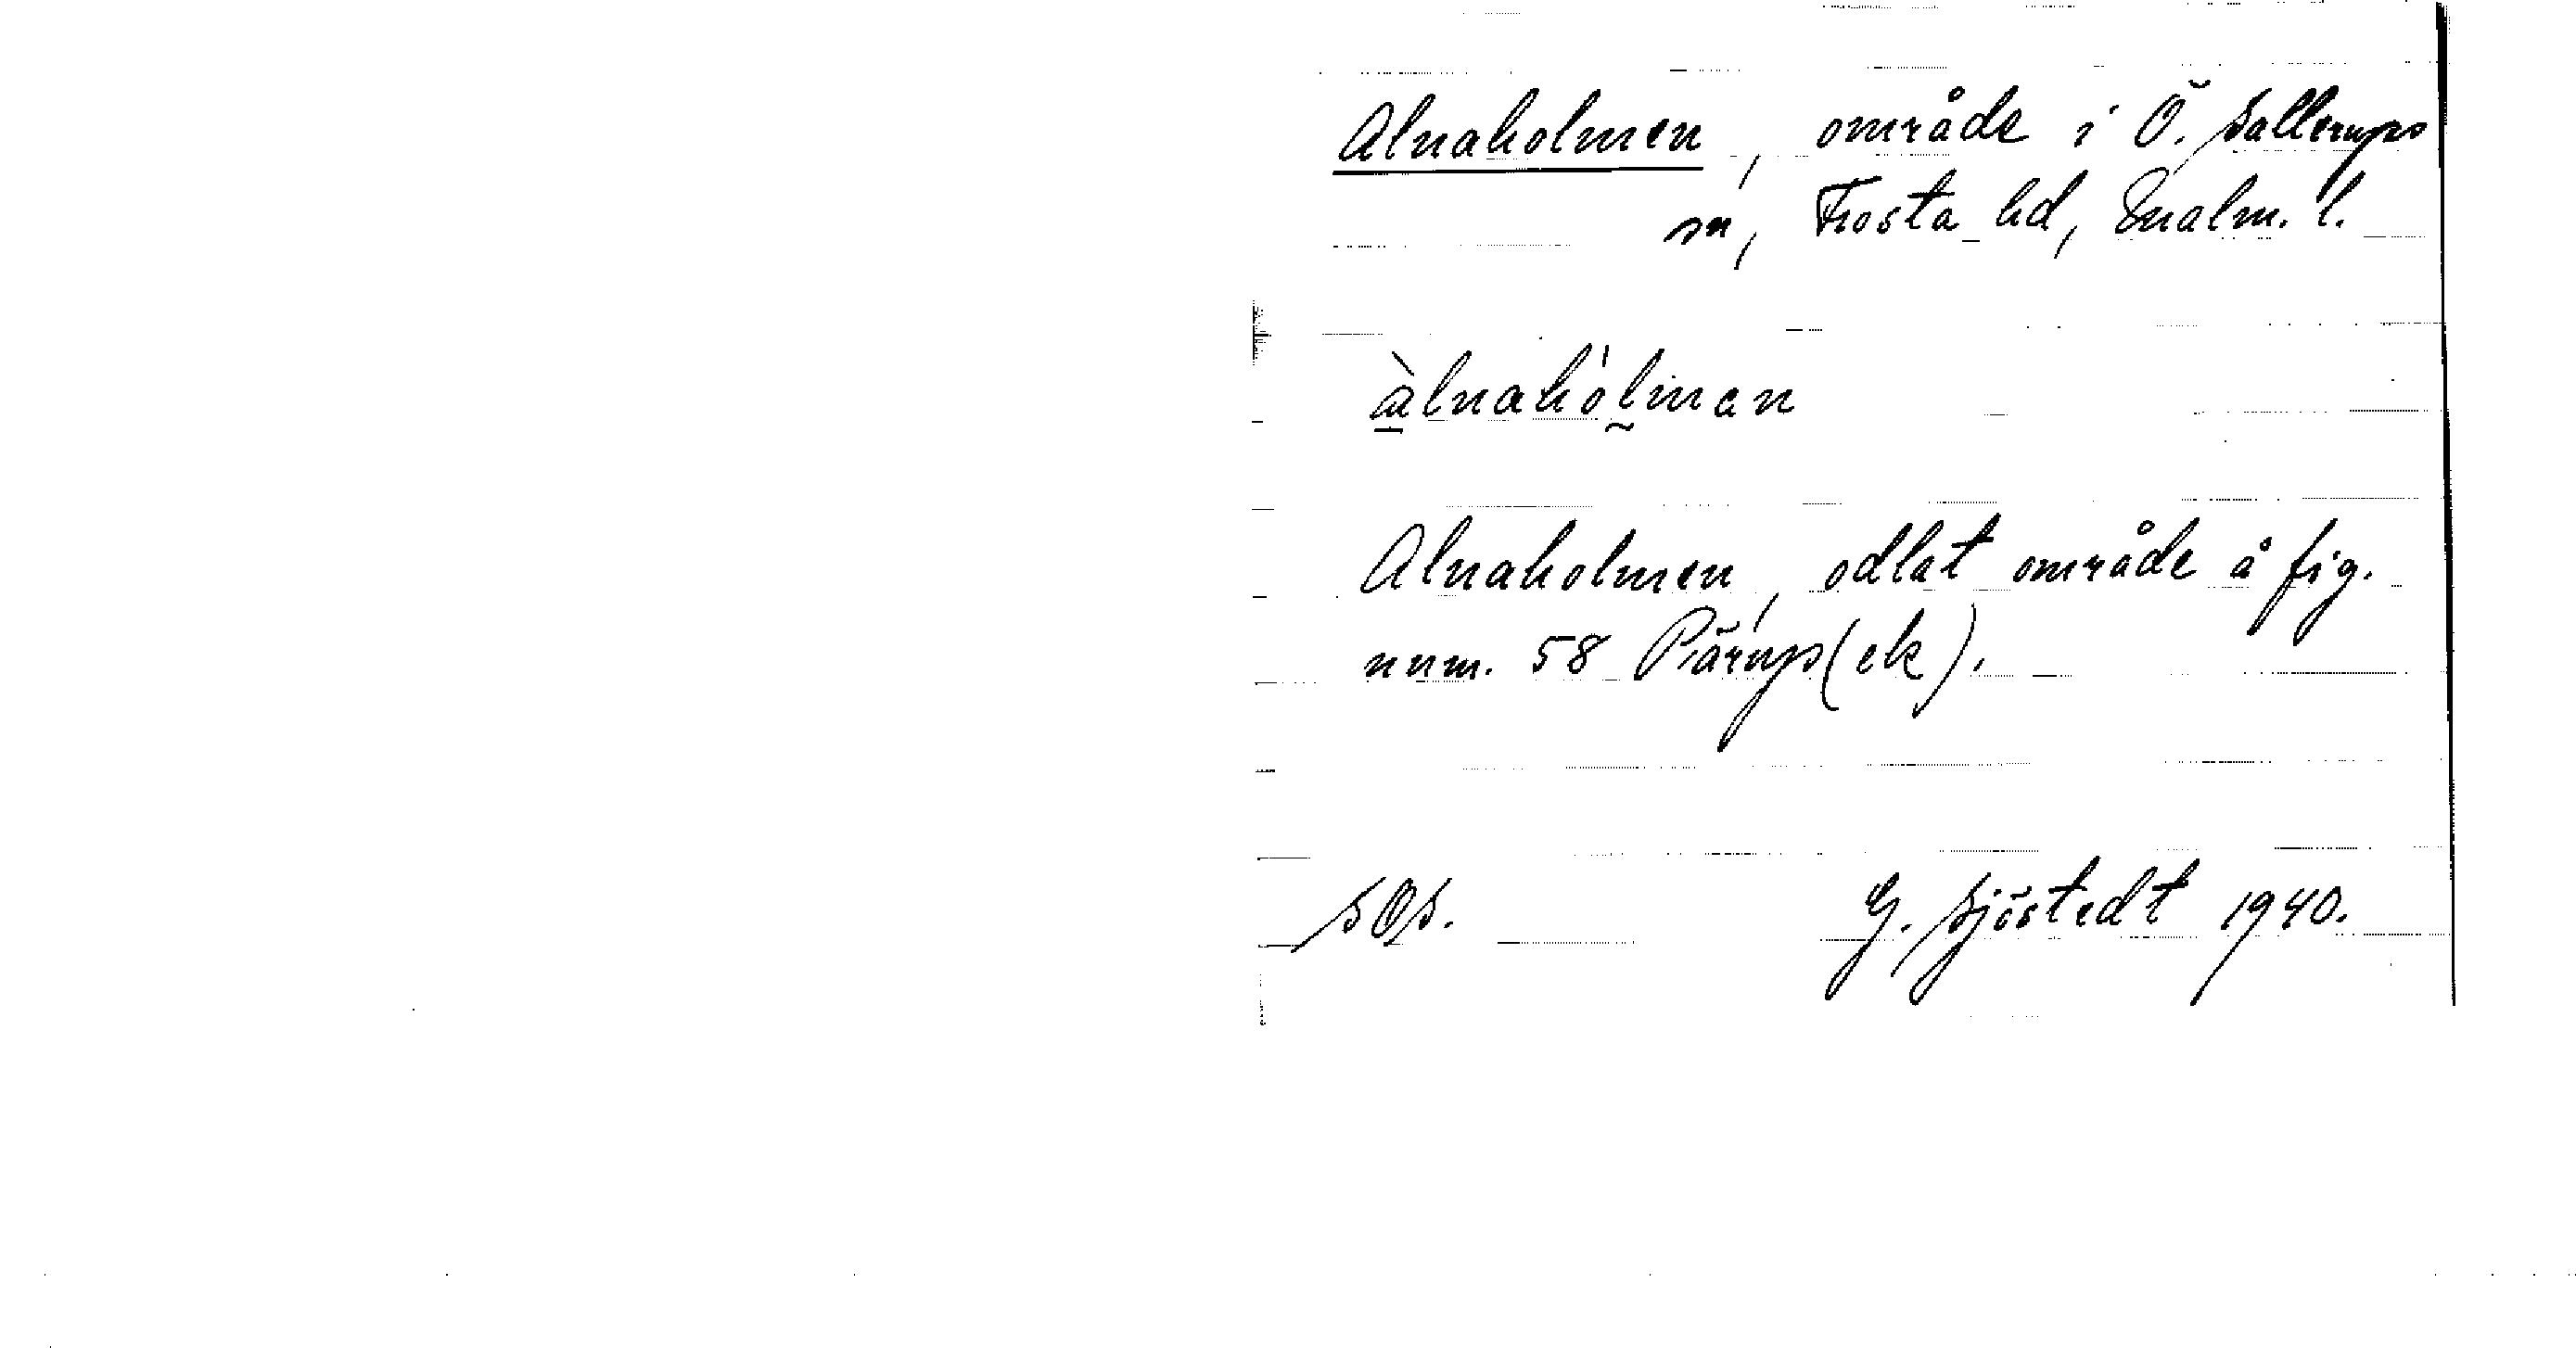 Alnaholmen, område i Ö. Sallerups
sn, Frosta hd, Malm. l.
àlnahólmen
Alnaholmen, odlat område å fig.
num. 58 Pärup (ek).
SOS. G. Sjöstedt 1940.